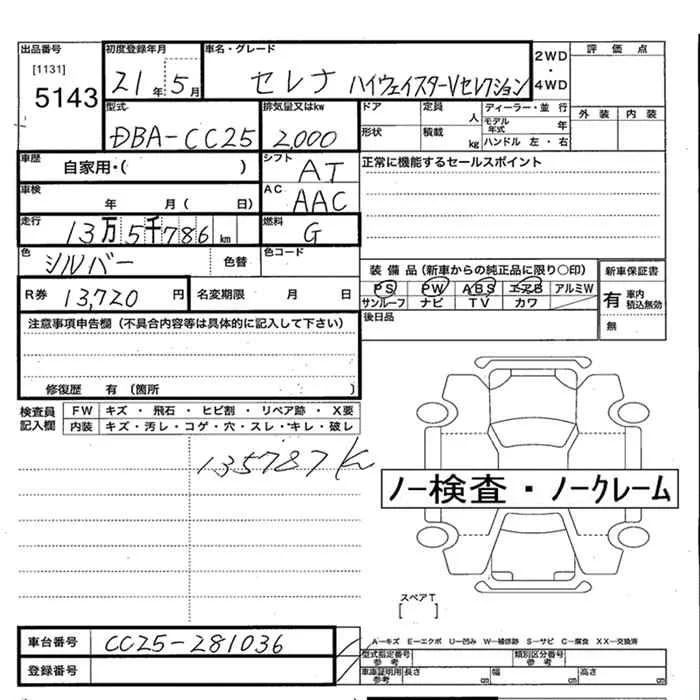 出品番号 初度登録年月 車名・グレード 2WD・4WD 評価点
[1131]
5143 21年5月 セレナ ハイウェイスターVセレクション 外装 内装
型式 排気量又はkw ドア 定員 人 ディーラー・並行
DBA-CC25 2,000 形状 積載 kg モデル年式 年 ハンドル 左・右
車歴 自家用・( ) シフト AT 正常に機能するセールスポイント
車検 年 月( 日) AC AAC
走行 13万5千786km 燃料 G
色 シルバー 色替 色コード 装備品(新車からの純正品に限り○印) 新車保証書
R券 13,720円 名変期限 月 日 PS PW ABS エアB アルミW 有 車内積込無効
サンルーフ ナビ TV カワ
注意事項申告欄(不具合内容等は具体的に記入して下さい) 後日品 無
修復歴 有(箇所 )
検査員記入欄 FW キズ・飛石・ヒビ割・リペア跡・X要
内装 キズ・汚レ・コゲ・穴・スレ・キレ・破レ
135787K
ノー検査・ノークレーム
スペアT
[ ]
車台番号 CC25-281036 A-キズ E-エクボ U-凹み W-補修跡 S-サビ C-腐食 XX-交換済
型式指定番号 参考 類別区分番号 参考
登録番号 車庫証明用 参考 長さ cm 幅 cm 高さ cm